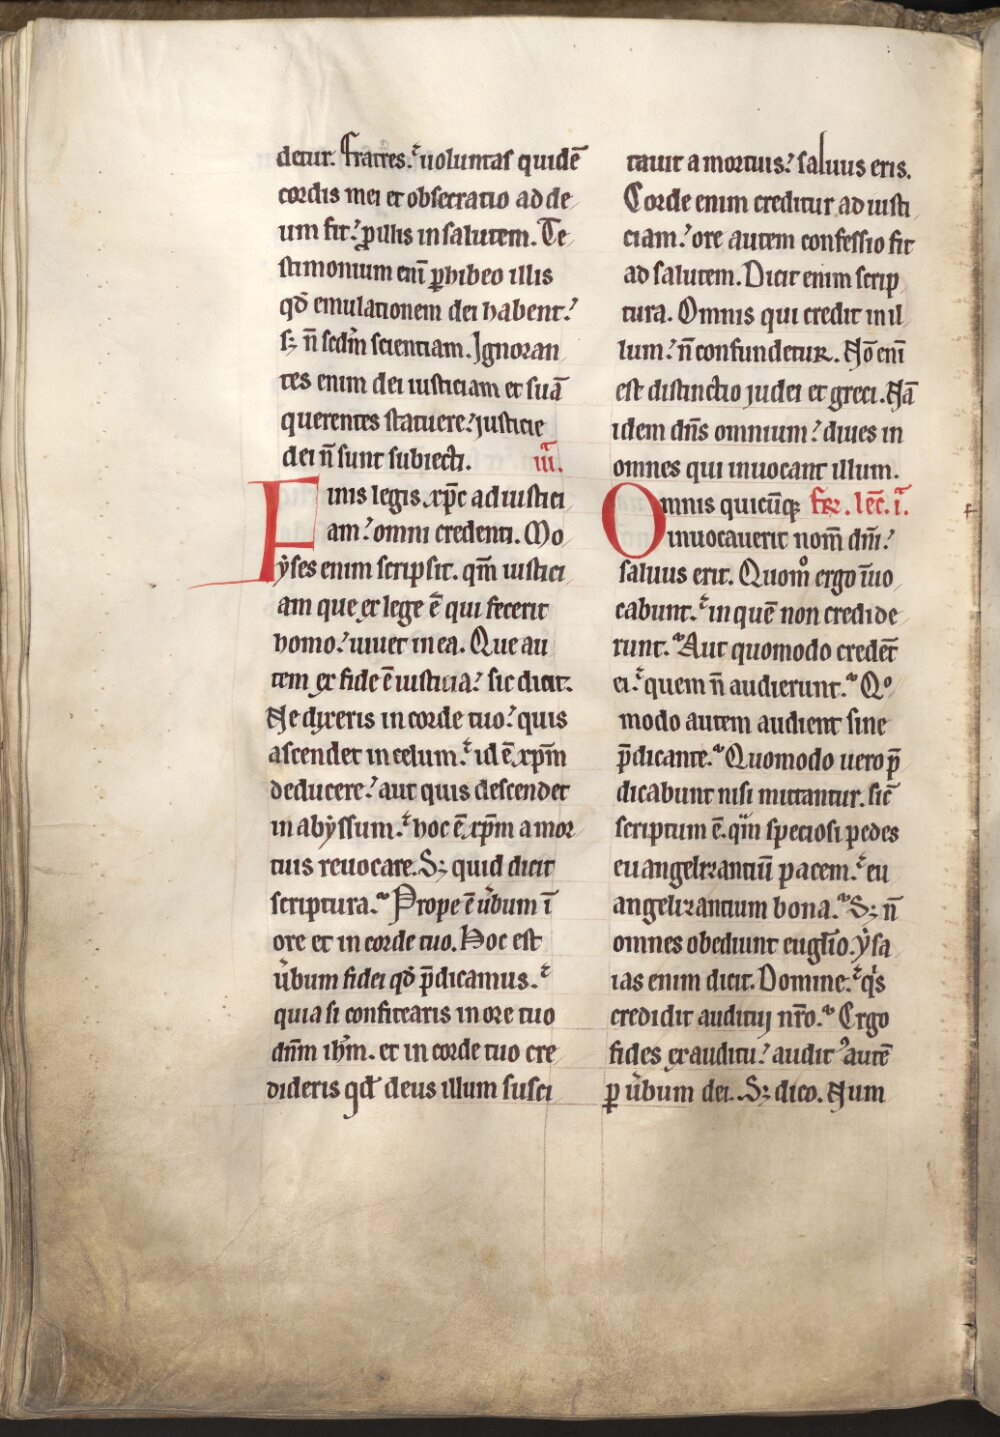 detur. Fratres. uoluntas quidē
cordis mei et obsecratio ad de
um fit. ꝑ illis in salutem. Te
stimonium eni̅ ꝑhibeo illis
qđ emulationem dei habent.
sꝫ n̅ scd̅m scientiam. Ignoran
tes enim dei iusticiam et suā
querentes statuere. justicie
dei n̅ sunt subiecti. iii.
Finis legis xp̅c ad iustici
am. omni credenti. Mo
yses enim scripsit. qm̅ iustici
am que ex lege ē qui fecerit
homo. uiuet in ea. Que au
tem ex fide ē iusticia. sic dicit.
Ne dixeris in corde tuo. quis
ascendet in celum. id ē xp̅m
deducere. aut quis descendet
in abyssum. hoc ē xp̅m a mor
tuis reuocare. Sꝫ quid dicit
scriptura. Prope ē u̅bum ī
ore et in corde tuo. Hoc est
u̅bum fidei qđ p̅dicamus.
quia si confitearis in ore tuo
dn̅m ih̅m. et in corde tuo cre
dideris qđ deus illum susci
tauit a mortuis. saluus eris.
Corde enim creditur ad iusti
ciam. ore autem confessio fit
ad salutem. Dicit enim scrip
tura. Omnis qui credit in il
lum. n̅ confundetur. No̅ eni̅
est distinctio judei et greci. Nā
idem dn̅s omnium. diues in
omnes qui inuocant illum.
Omnis quicūqꝫ Fr̅. lec̅. i.
inuocauerit nom̅ dn̅i.
saluus erit. Quom̊ ergo īuo
cabunt. in quē non credide
runt. Aut quomodo credēt
ei. quem n̅ audierunt. Qº
modo autem audient sine
p̅dicante. Quomodo uero p̅
dicabunt nisi mittantur. sic̅
scriptum ē. qm̅ speciosi pedes
euangelizantiū pacem. eu
angelizantium bona. Sꝫ n̅
omnes obediunt eugl̅io. ysa
ias enim dicit. Domine. qͥs
credidit auditij nr̅o. Ergo
fides ex auditu. audit᾿ autē
ꝑ u̅bum dei. Sꝫ dico. Num